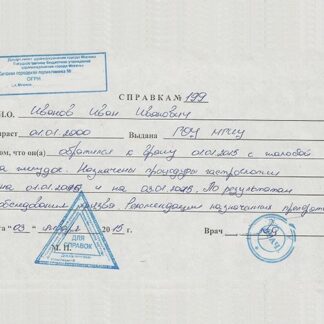 Департамент здравоохранения города Москвы
Государственное бюджетное учреждение
здравоохранения города Москвы
городская поликлиника №
ОГРН
г. Москва
СПРАВКА № 199
И.О. Иванов Иван Иванович
зраст 01.01.2000 Выдана РОУ
ом, что он(а) обратился к врачу 01.01.2015 с жалобой
на желудок. Назначены процедуры гастроскопии
на 01.01.2015 и на 03.01.2015. По результатам
обследования язва Рекомендации назначенных
та "03" января 2015 г. Врач
М. П.
ДЛЯ
СПРАВОК
ВРАЧ